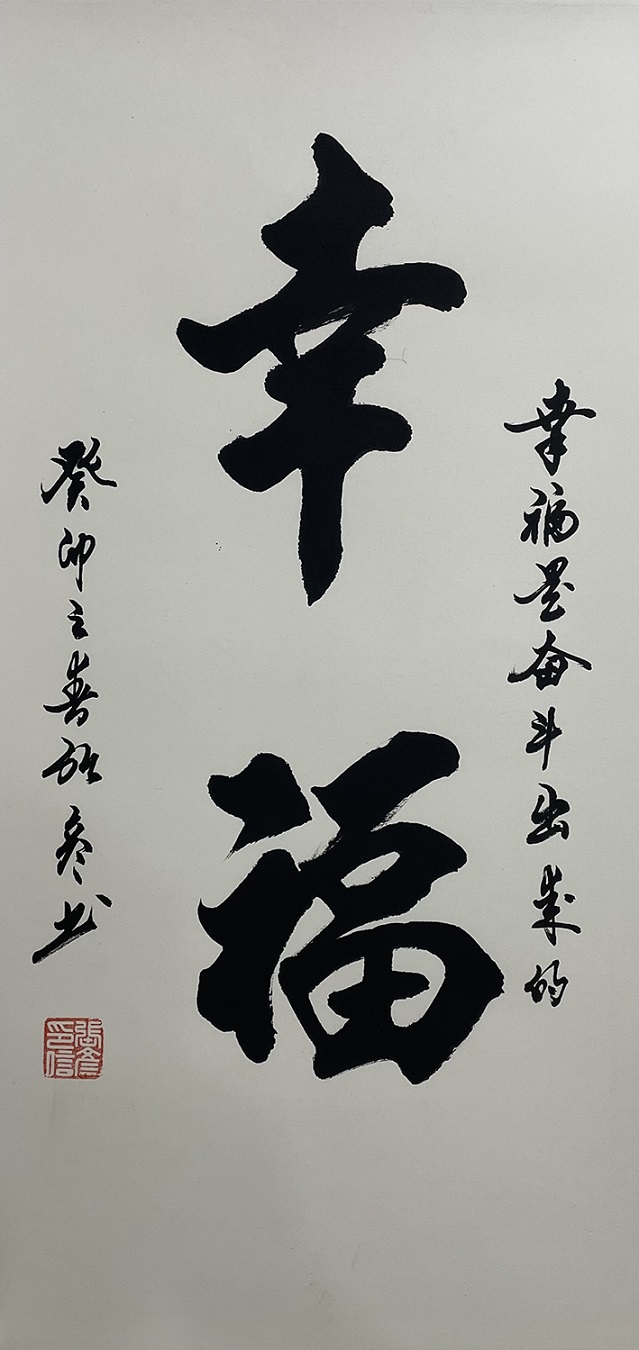 幸福是奋斗出来的
幸福
癸卯之春张彦书
張彦信印